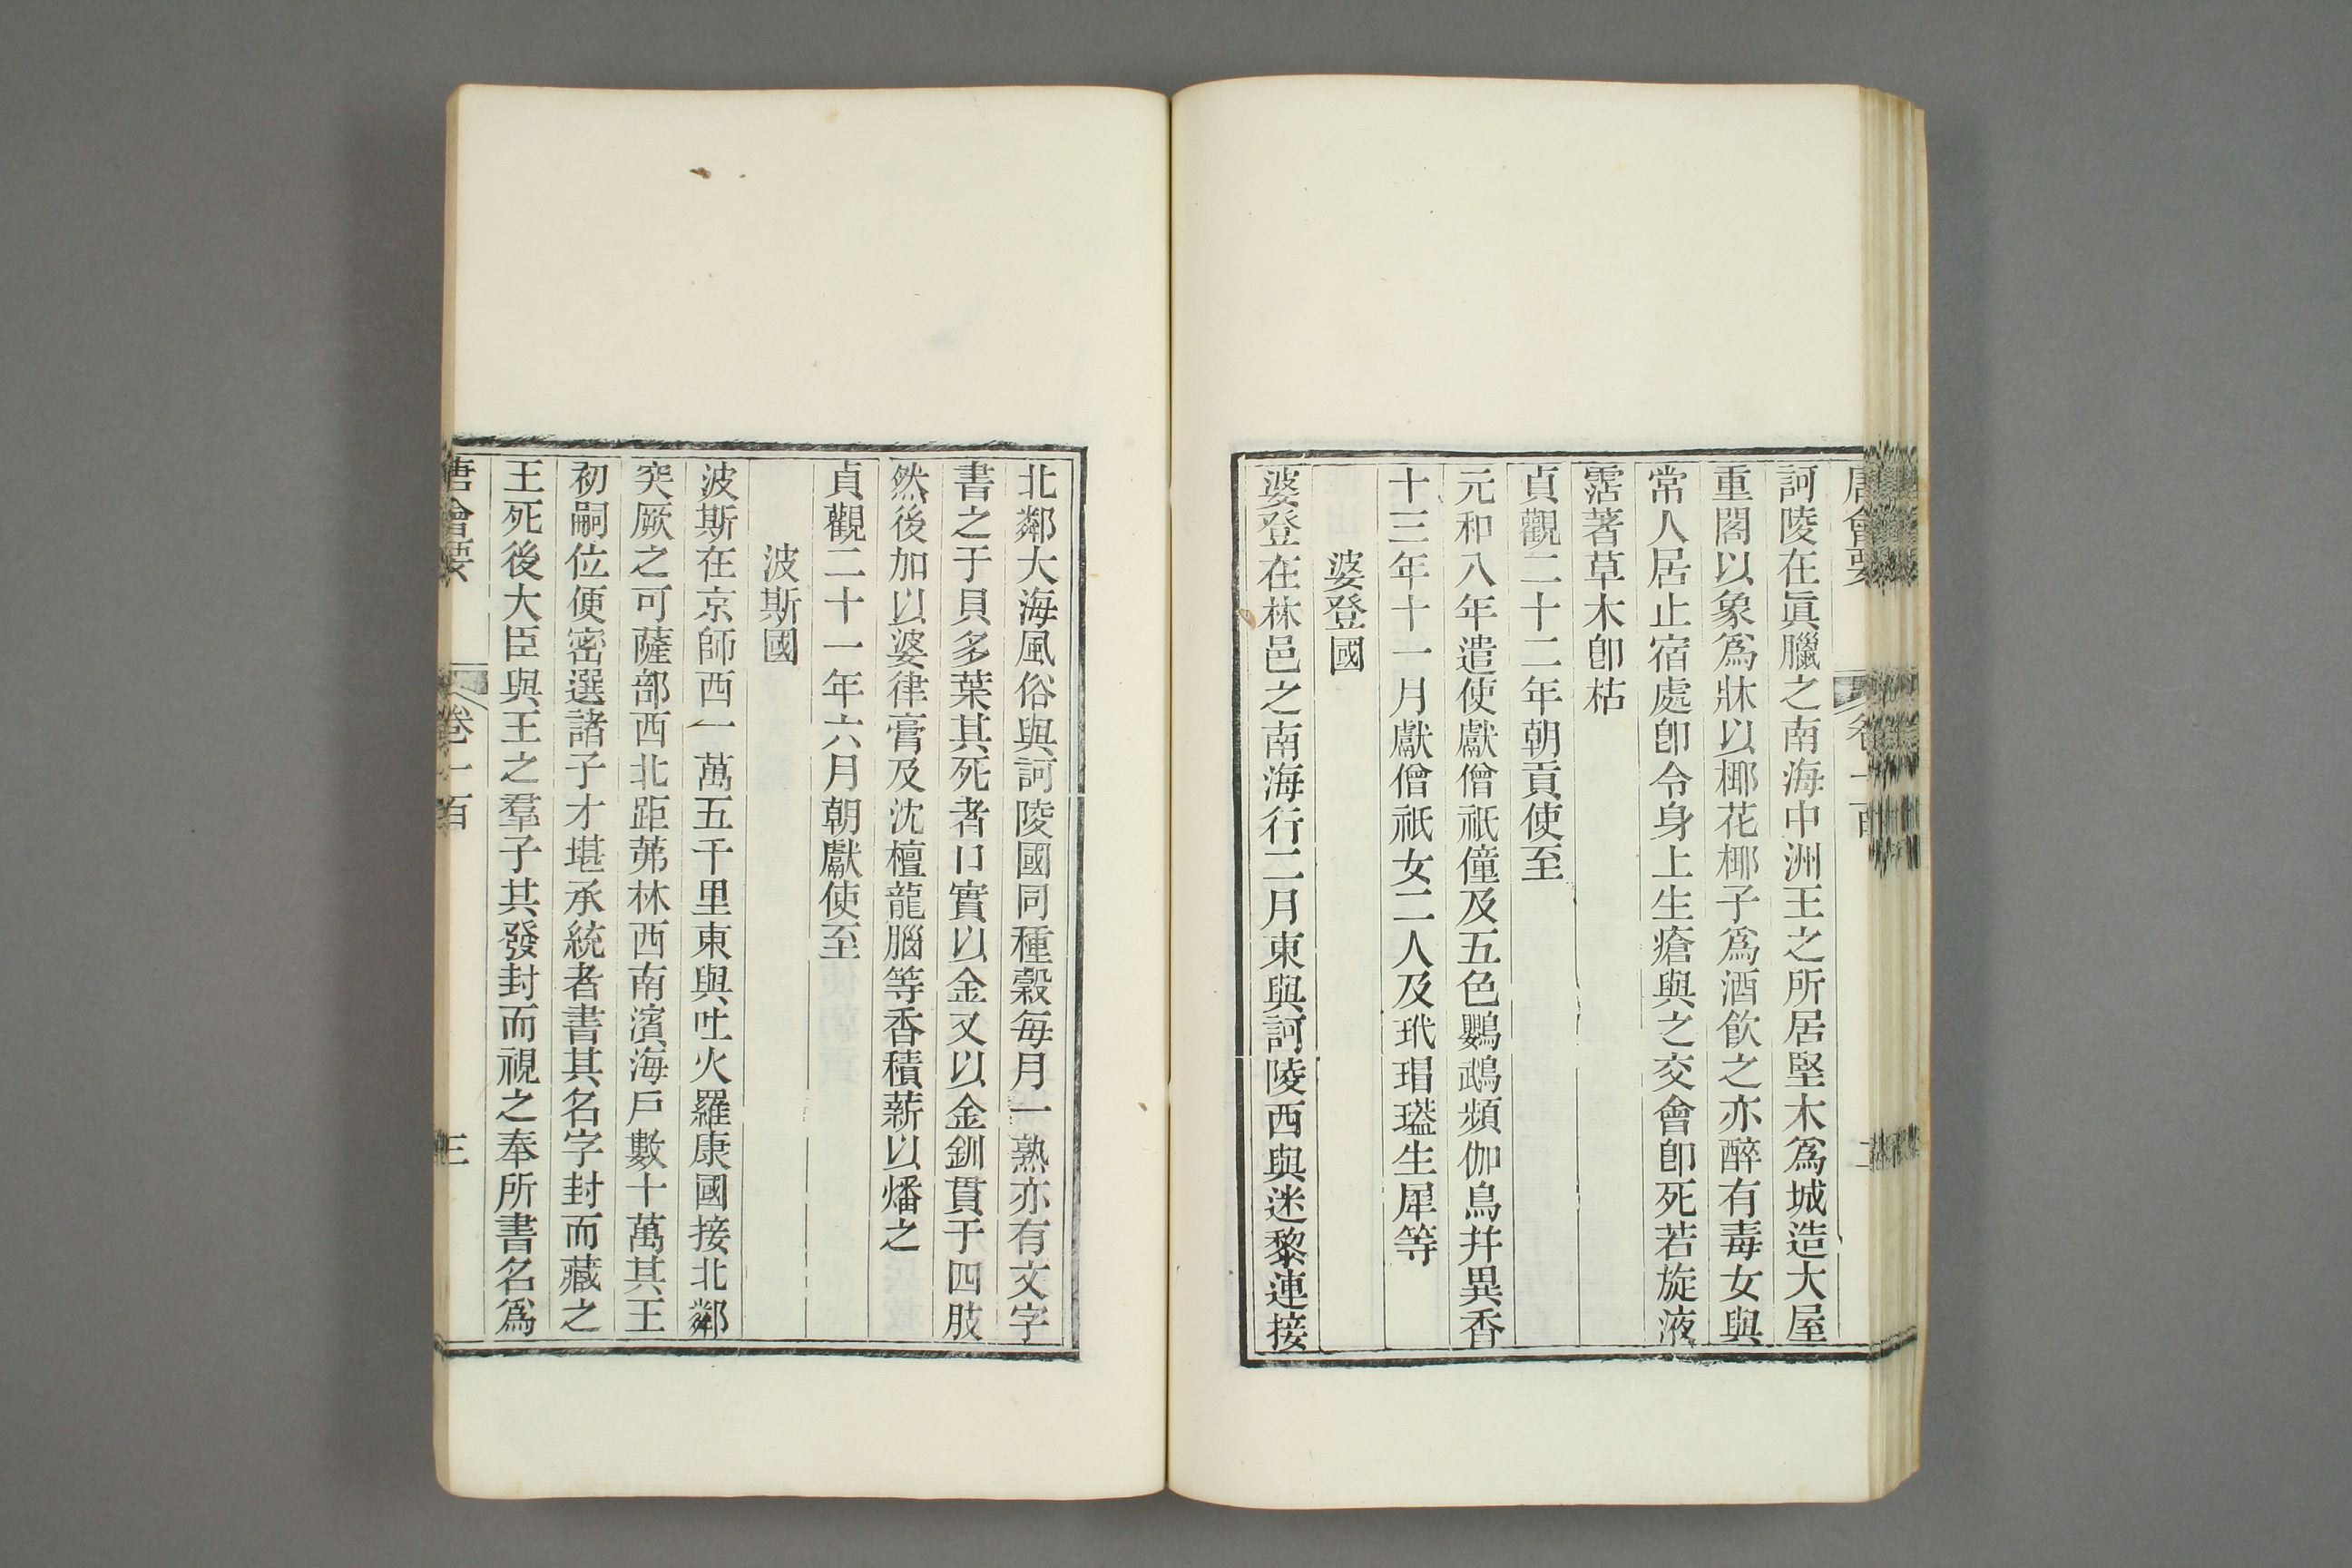 訶陵在眞臘之南海中洲王之所居堅木爲城造大屋
重閣以象爲牀以椰花椰子爲酒飮之亦醉有毒女與
常人居止宿處卽令身上生瘡與之交會卽死若旋液
霑著草木卽枯
貞觀二十二年朝貢使至
元和八年遣使獻僧祇僮及五色鸚鵡頻伽鳥幷異香
十三年十一月獻僧祇女二人及玳瑁㼐生犀等
婆登國
婆登在林邑之南海行二月東與訶陵西與迷黎連接
北鄰大海風俗與訶陵國同種穀每月一熟亦有文字
書之于貝多葉其死者口實以金又以金釧貫于四肢
然後加以婆律膏及沈檀龍腦等香積薪以燔之
貞觀二十一年六月朝獻使至
波斯國
波斯在京師西一萬五千里東與吐火羅康國接北鄰
突厥之可薩部西北距茀林西南濱海戶數十萬其王
初嗣位便密選諸子才堪承統者書其名字封而藏之
王死後大臣與王之羣子其發封而視之奉所書名爲
唐會要 卷一百 三